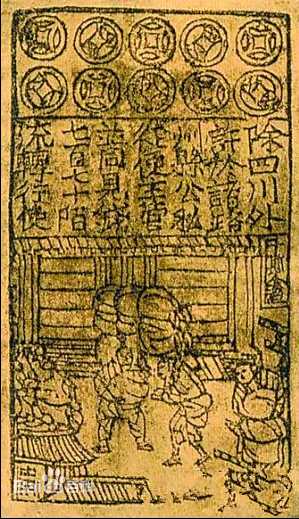 除四川外
許於諸路
州縣公私
從便主管
並同見錢
七百七十陌
流轉行使
Baidu百科